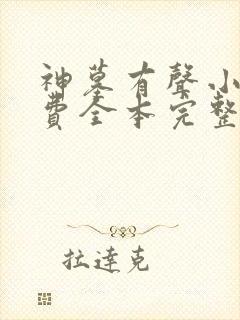 神墓有聲小
費全本完整
拉達克